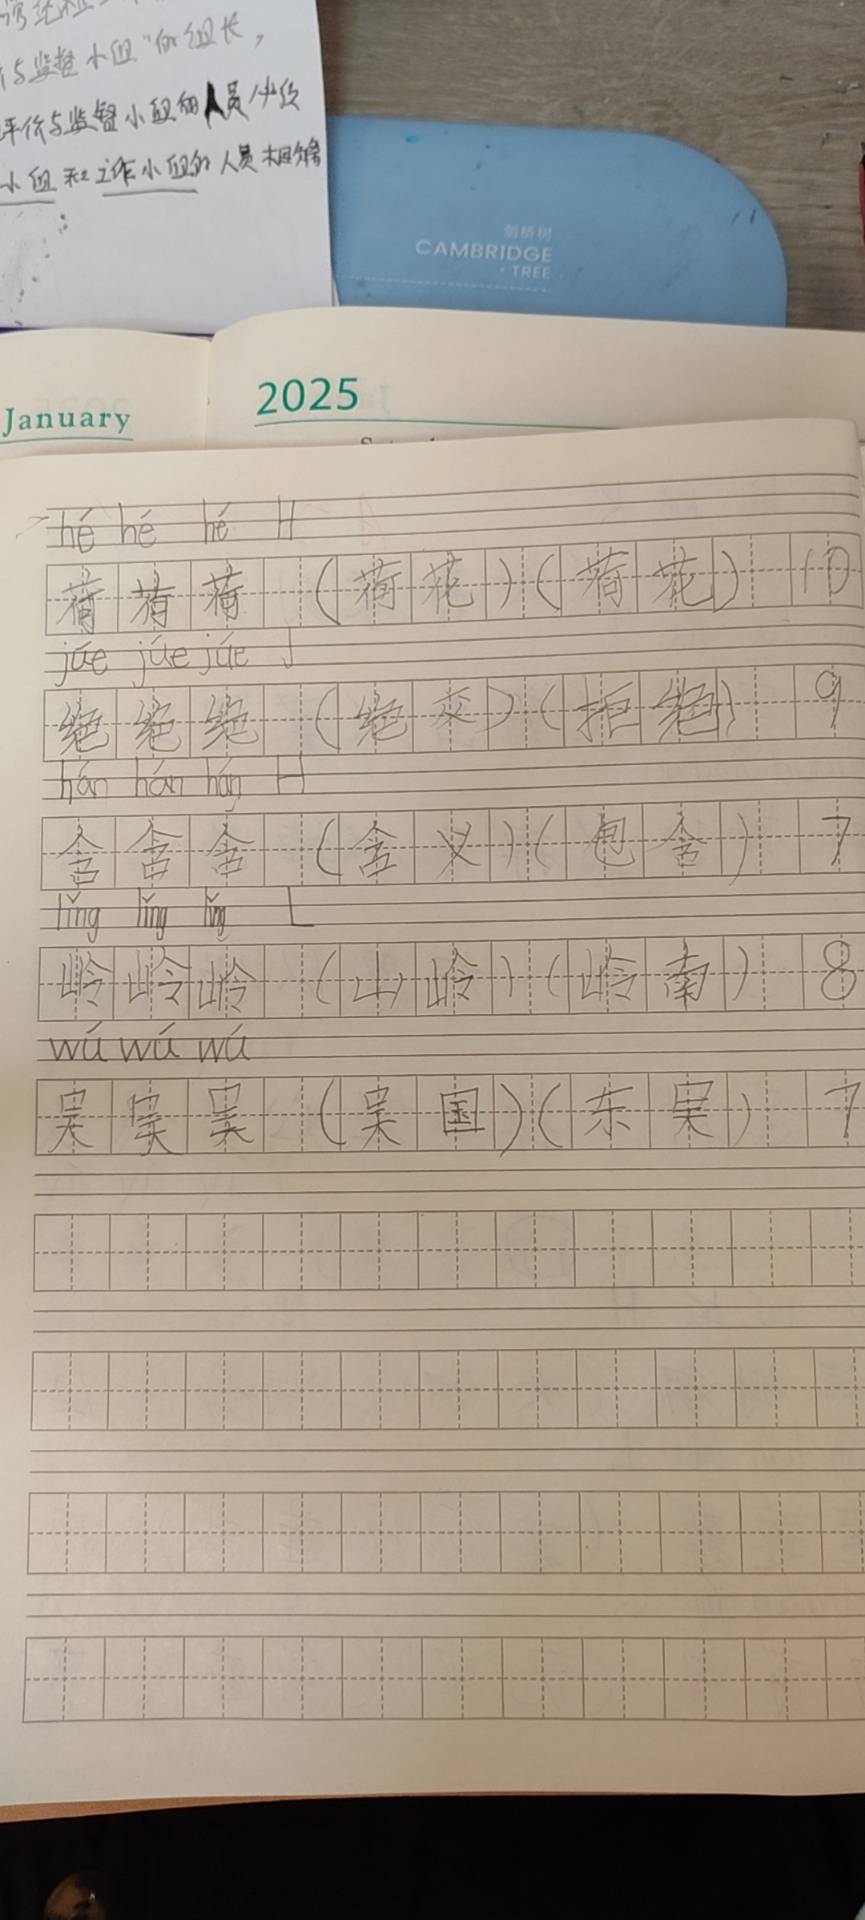 与监督小组"的组长，
评价与监督小组的人员分设
小组和工作小组的人员相部
剑桥树
CAMBRIDGE
· TREE ·
January
2025
hé hé hé H
荷荷荷（荷花）（荷花）10
júe júe júe J
绝绝绝（绝交）（拒绝）9
hán hán hán H
含含含（含义）（包含）7
lǐng lǐng lǐng L
岭岭岭（山岭）（岭南）8
wú wú wú
吴吴吴（吴国）（东吴）7